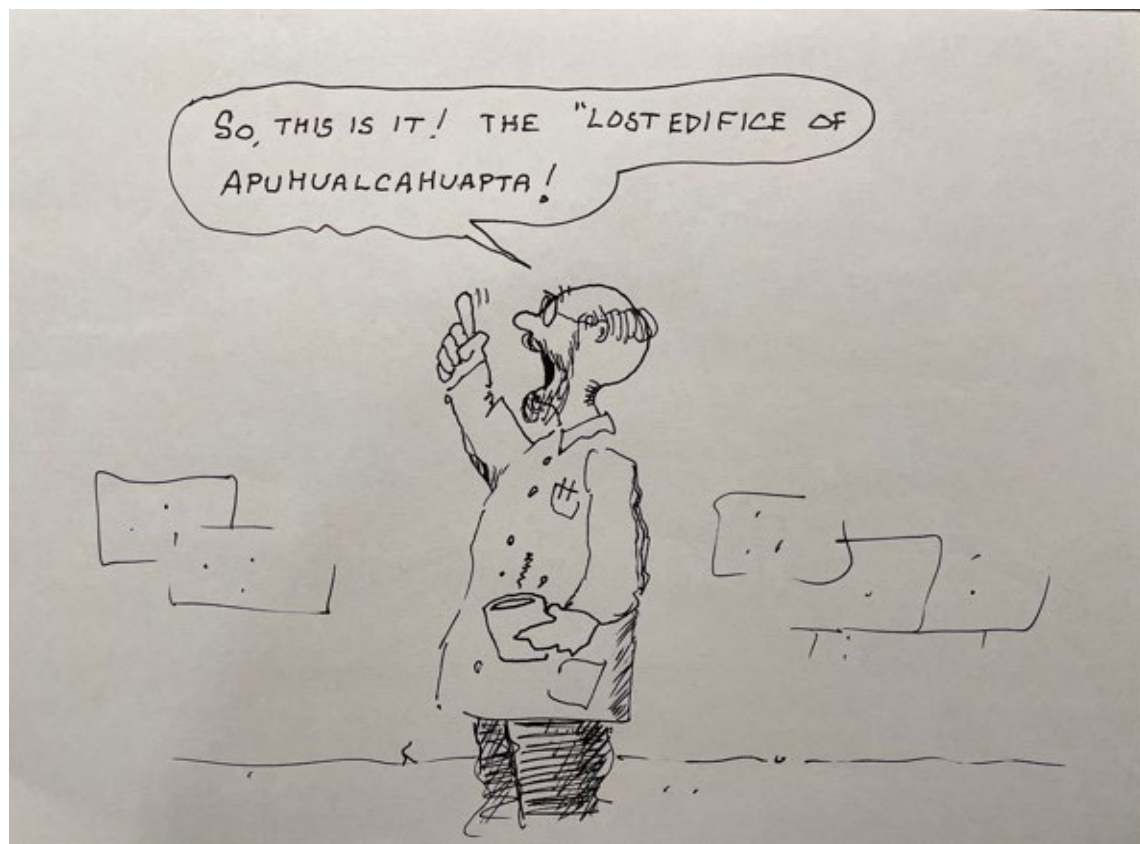 So, THIS IS IT! THE "LOST EDIFICE OF
APUHUALCAHUAPTA!